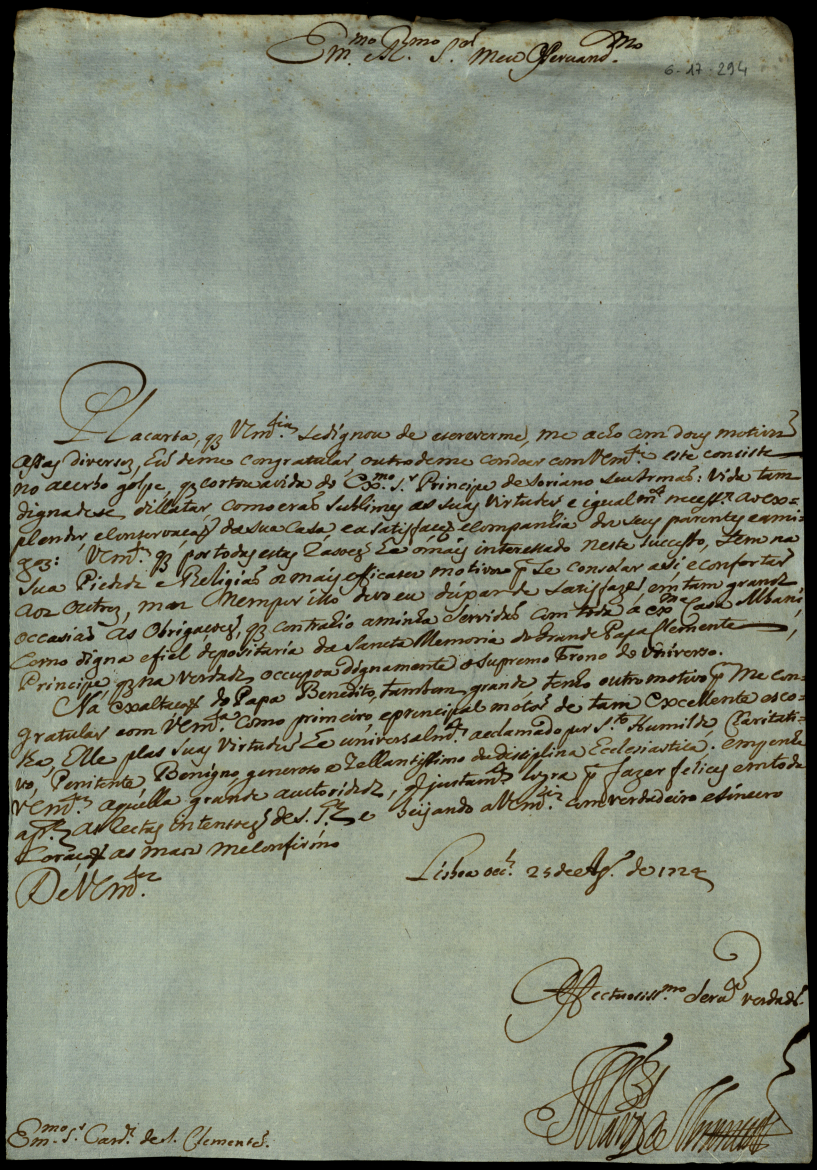 Em.mo e R.mo S.or meu Venerand.mo
6-17-294
Na carta, q̃ V Em.cia se dignou de escreverme, me acho com dous motivos
assas diversos, hũ de me congratular, outro de me condoer com V Em.cia este consiste
no acerbo golpe, q̃ cortou a vida do Ex.mo S.r Principe de Soriano seu Irmaõ: Vida tam
digna de se dillatar, como eraõ sublimes as suas virtudes, e igualm.te necess.ra ao ex=
plendor, e conservaçaõ da sua Casa, e a satisfaçaõ, e companhia de seus parentes e ami=
gos: V Em.cia q̃ por todas estas razoes he o mais interessado neste successo, tem na
sua Piedade e Religiaõ os mais efficases motivos p.a se consolar a si, e confortar
aos outros, mas nem por isso devo eu deixar de satisfazer em tam grande
occasiaõ as obrigaçoes, q̃ contrahio a minha servidaõ com toda a Ex.ma Casa Albani,
como digna e fiel depositaria da Sancta Memoria do Grande Papa Clemente
Principe, q̃ na verdade occupou dignamente o supremo Trono do Universo.
Na exaltaçaõ do Papa Benedito, tambem grande tenho outro motivo p.a me con=
gratular com V Em.cia como primeiro e principal motor de tam excellente esco=
lha, Elle pelas suas virtudes he universalm.te acclamado por S.to Humilde, Caritati=
vo, Penitente Benigno generoso e Zellantissimo da disciplina Ecclesiastica: empenhe
V Em.cia aquella grande autoridade, q̃ justam.te logra p.a fazer felices em toda
a p.te as rectas intensoes de S. S.de e beijando a V Em.cia com verdadeiro e sincero
coraçaõ as maos me confirmo
De V Em.cia
Lisboa occ.l 25 de Ag.o de 1724
Affectuosiss.mo Servo verdad.o
Em.mo S.r Card.l de S. Clemente.